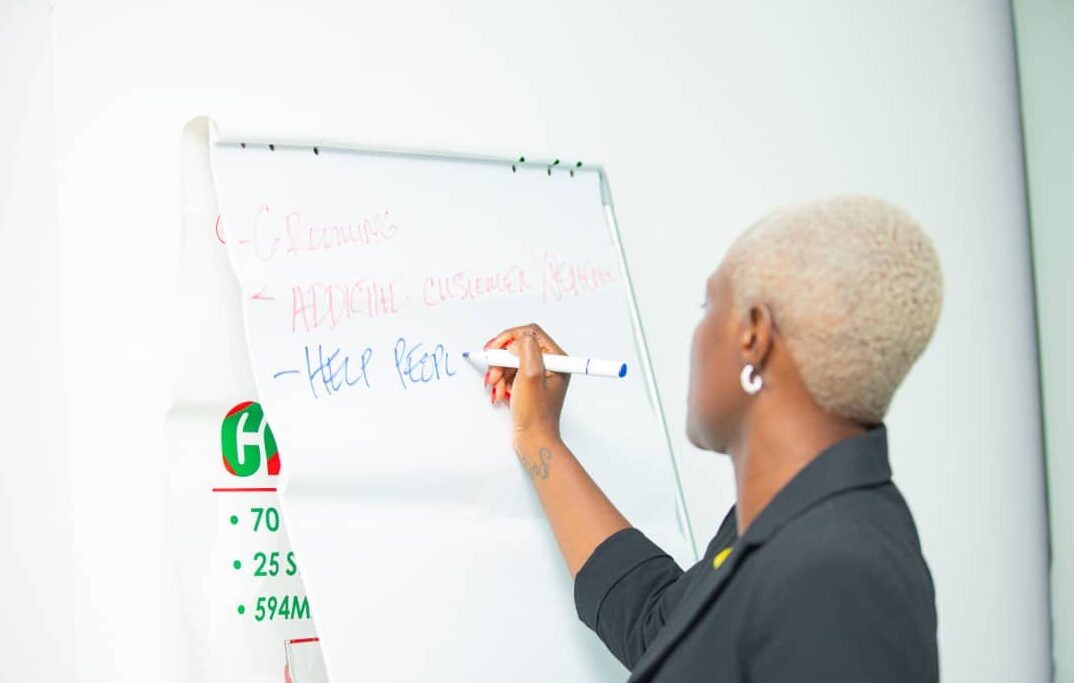 - GROOMING
- ADDICTIVE CUSTOMER
- HELP PEOPL
CH
• 70
• 25 S
• 594M